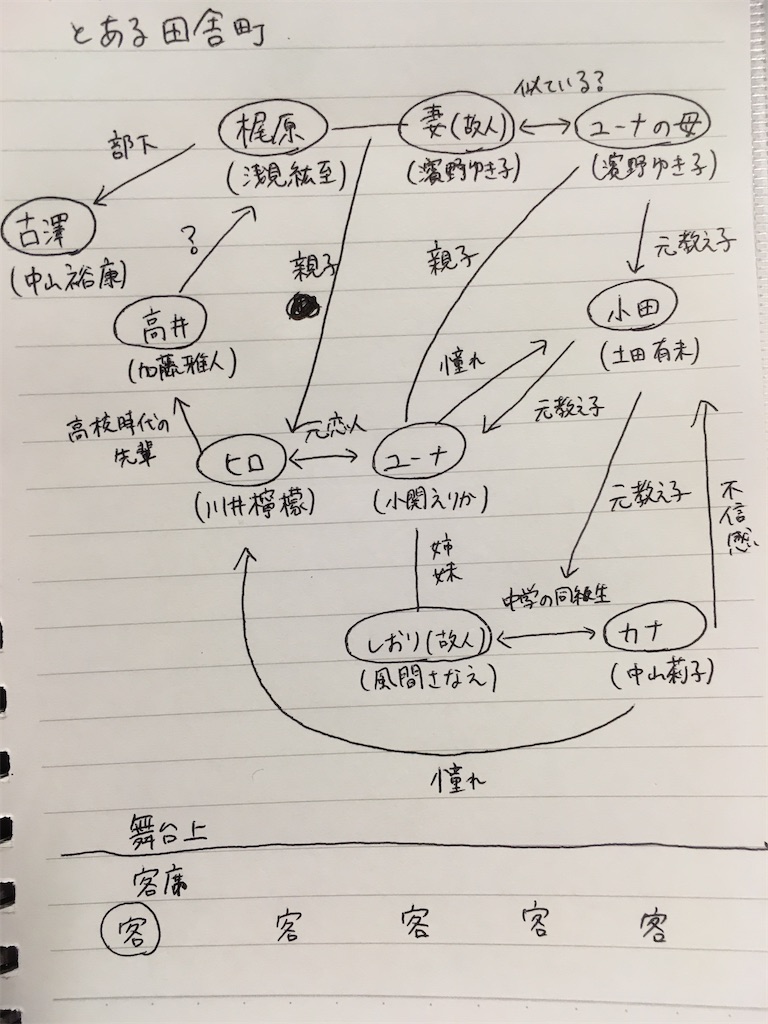 とある田舎町
似ている？
梶原
妻(故人)
ユーナの母
部下
(浅見紘至)
(濱野ゆき子)
(濱野ゆき子)
古澤
?
親子
親子
元教え子
(中山裕康)
高井
小田
(加藤雅人)
憧れ
(土田有未)
高校時代の
先輩
元恋人
元教え子
ヒロ
ユーナ
(川井檸檬)
(小関えりか)
元教え子
不信感
姉妹
中学の同級生
しおり(故人)
カナ
(風間さなえ)
(中山莉子)
憧れ
舞台上
客席
客 客 客 客 客